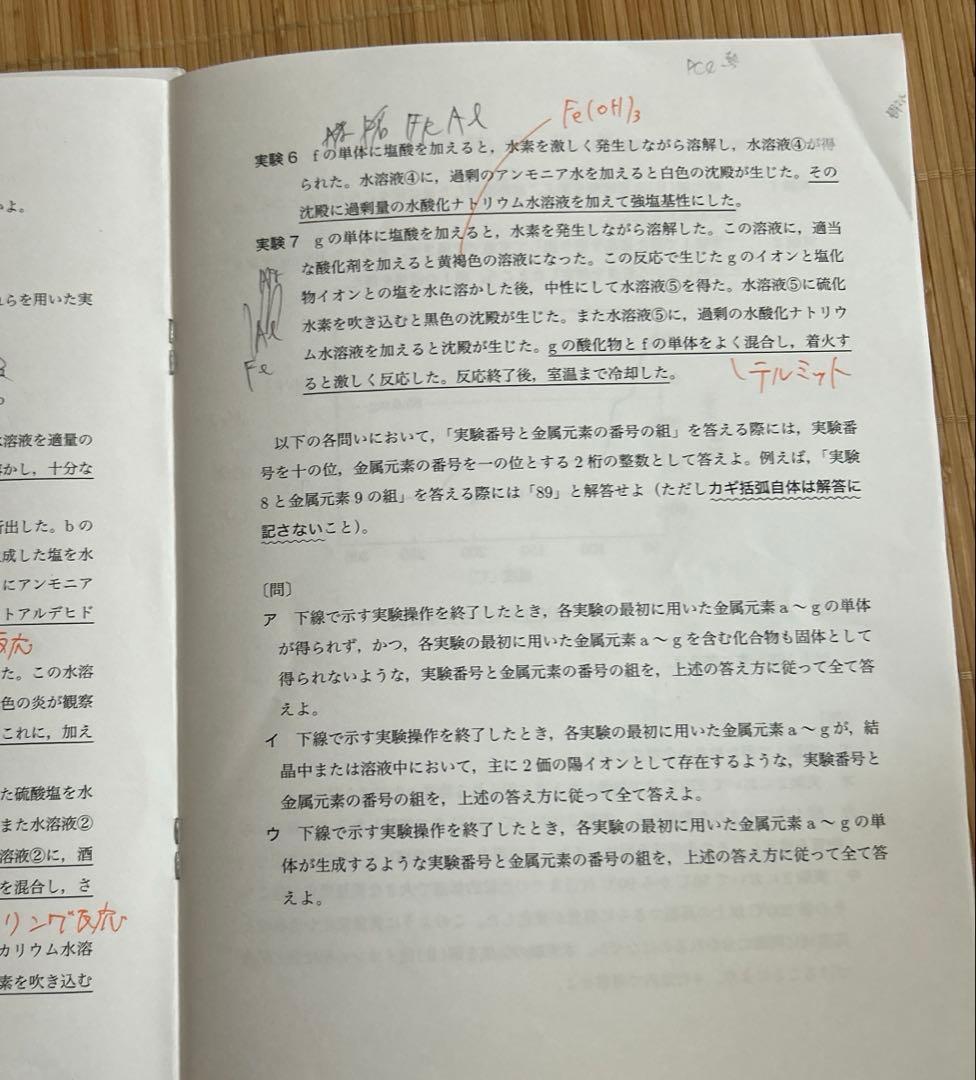 いよ。
れらを用いた実
溶液を適量の
溶かし，十分な
析出した。bの
生成した塩を水
にアンモニア
トアルデヒド
反応
た。この水溶
色の炎が観察
これに，加え
た硫酸塩を水
また水溶液②
溶液②に，酒
を混合し，さ
リング反応
カリウム水溶
素を吹き込む
Fe Al
Fe(OH)₃
実験6 fの単体に塩酸を加えると，水素を激しく発生しながら溶解し，水溶液④が得
られた。水溶液④に，過剰のアンモニア水を加えると白色の沈殿が生じた。その
沈殿に過剰量の水酸化ナトリウム水溶液を加えて強塩基性にした。
実験7 gの単体に塩酸を加えると，水素を発生しながら溶解した。この溶液に，適当
な酸化剤を加えると黄褐色の溶液になった。この反応で生じたgのイオンと塩化
物イオンとの塩を水に溶かした後，中性にして水溶液⑤を得た。水溶液⑤に硫化
水素を吹き込むと黒色の沈殿が生じた。また水溶液⑤に，過剰の水酸化ナトリウ
ム水溶液を加えると沈殿が生じた。gの酸化物とfの単体をよく混合し，着火す
ると激しく反応した。反応終了後，室温まで冷却した。
Al
Fe
テルミット
以下の各問いにおいて，「実験番号と金属元素の番号の組」を答える際には，実験番
号を十の位，金属元素の番号を一の位とする2桁の整数として答えよ。例えば，「実験
8と金属元素9の組」を答える際には「89」と解答せよ（ただしカギ括弧自体は解答に
記さないこと）。
〔問〕
ア 下線で示す実験操作を終了したとき，各実験の最初に用いた金属元素a～gの単体
が得られず，かつ，各実験の最初に用いた金属元素a～gを含む化合物も固体として
得られないような，実験番号と金属元素の番号の組を，上述の答え方に従って全て答
えよ。
イ 下線で示す実験操作を終了したとき，各実験の最初に用いた金属元素a～gが，結
晶中または溶液中において，主に2価の陽イオンとして存在するような，実験番号と
金属元素の番号の組を，上述の答え方に従って全て答えよ。
ウ 下線で示す実験操作を終了したとき，各実験の最初に用いた金属元素a～gの単
体が生成するような実験番号と金属元素の番号の組を，上述の答え方に従って全て答
えよ。